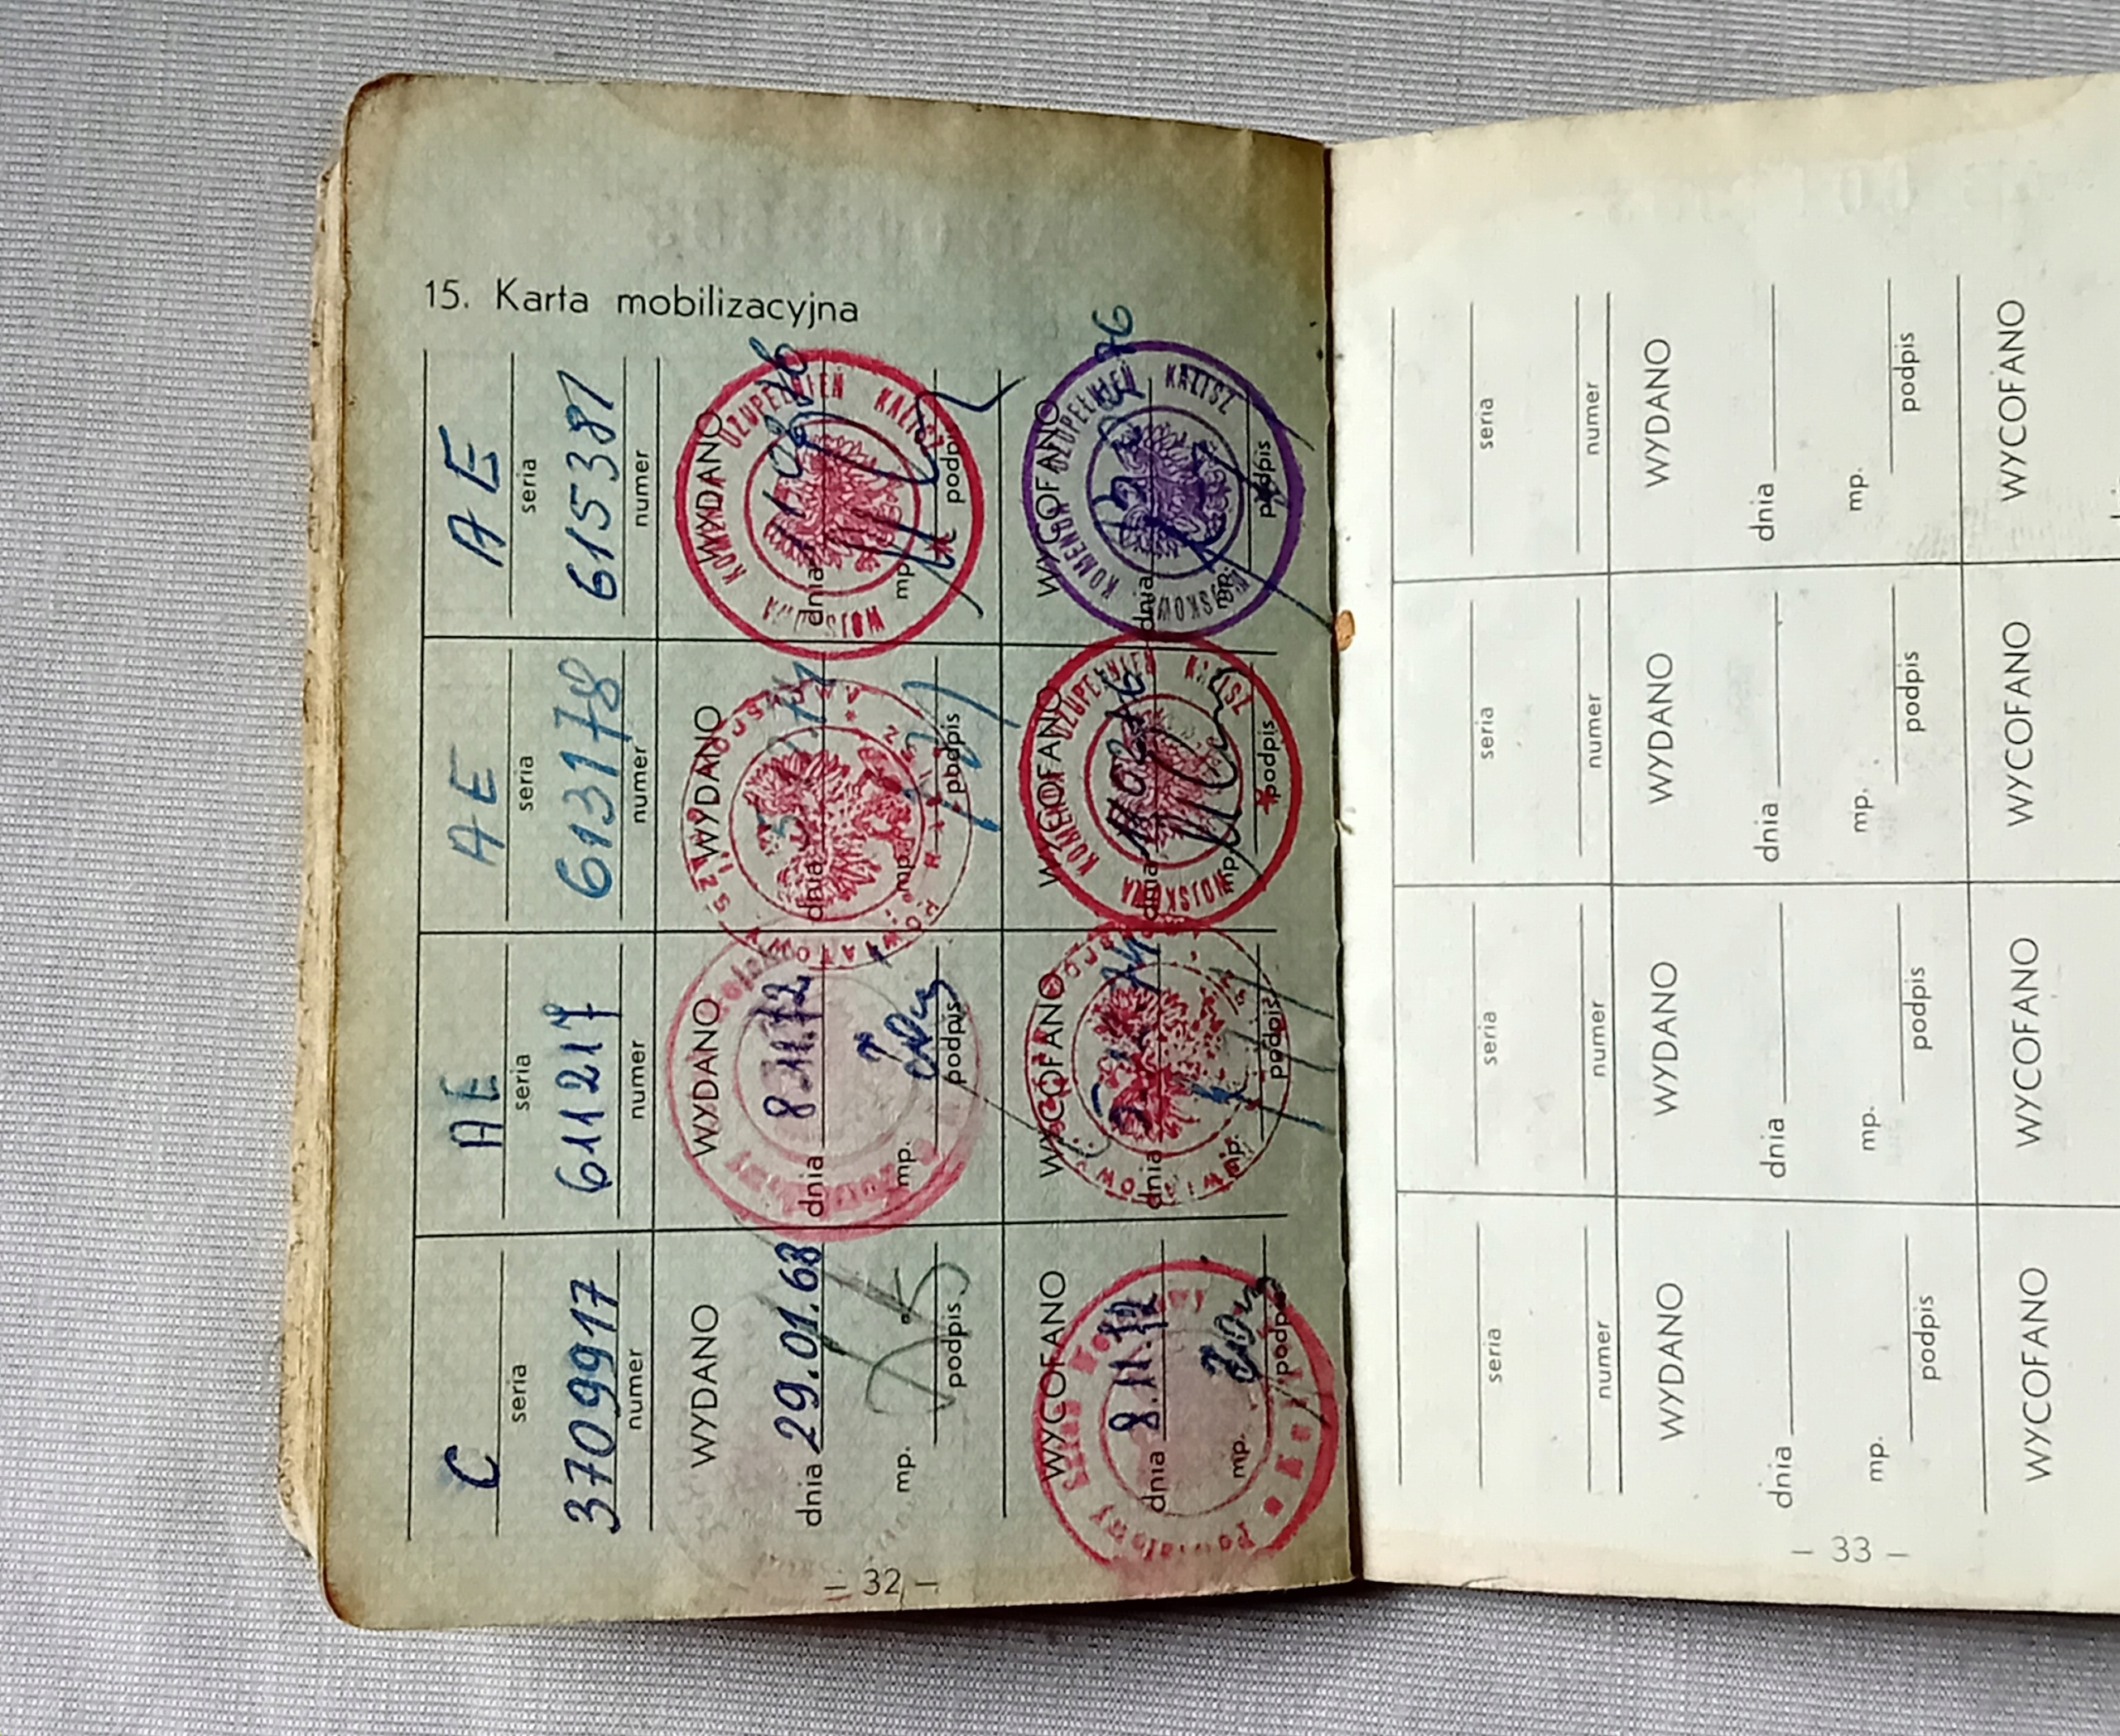 15. Karta mobilizacyjna
C
seria
3709917
numer
WYDANO
dnia 29.01.68
mp.
podpis
WYCOFANO
dnia 8.11.72
mp.
podpis
Powiatowy Sztab
AE
seria
611217
numer
WYDANO
dnia 8.11.72
mp.
podpis
WYCOFANO
dnia
mp.
podpis
AE
seria
613178
numer
WYDANO
dnia
mp.
podpis
POWIATOWY SZTAB WOJSKOWY
WYCOFANO
dnia 11.02.76
mp.
podpis
WOJSKOWA KOMENDA UZUPEŁNIEŃ KALISZ
AE
seria
615381
numer
WYDANO
dnia
mp.
podpis
WOJSKOWA KOMENDA UZUPEŁNIEŃ KALISZ
WYCOFANO
dnia
mp.
podpis
WOJSKOWA KOMENDA UZUPEŁNIEŃ KALISZ
– 32 –
seria
numer
WYDANO
dnia
mp.
podpis
WYCOFANO
seria
numer
WYDANO
dnia
mp.
podpis
WYCOFANO
seria
numer
WYDANO
dnia
mp.
podpis
WYCOFANO
seria
numer
WYDANO
dnia
mp.
podpis
WYCOFANO
– 33 –